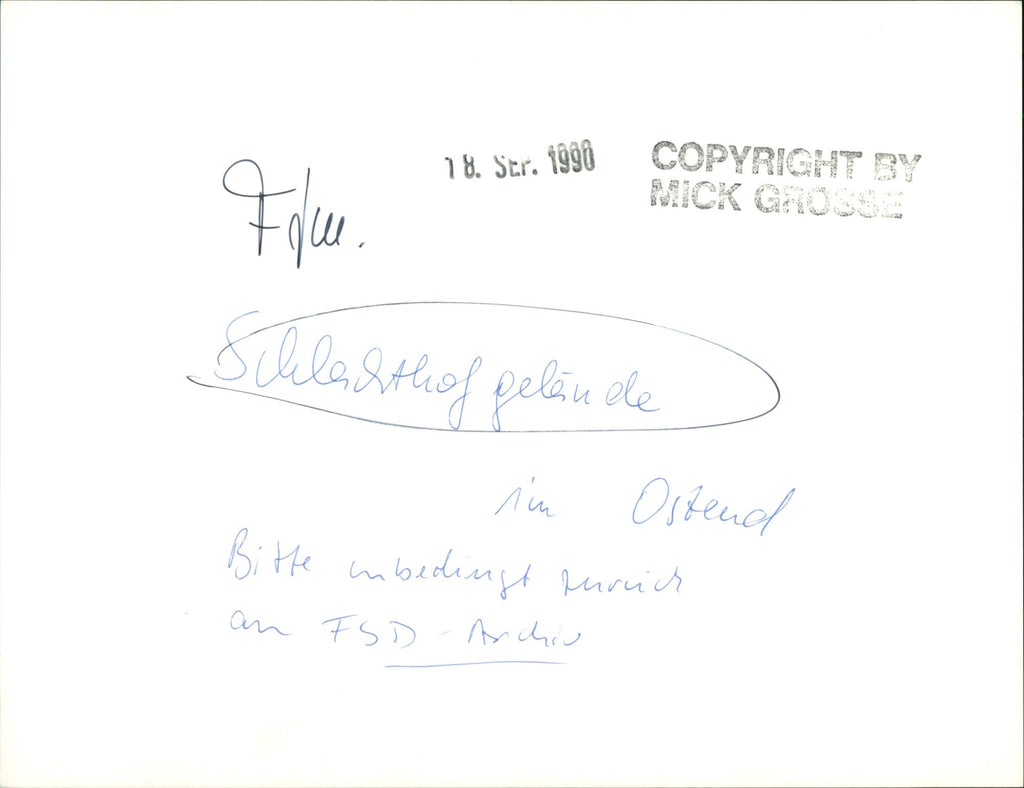 18. SEP. 1990
COPYRIGHT BY
MICK GROSSE
Ffm.
Schlachthofgelände
im Ostend
Bitte unbedingt zurück
an FSD-Archiv